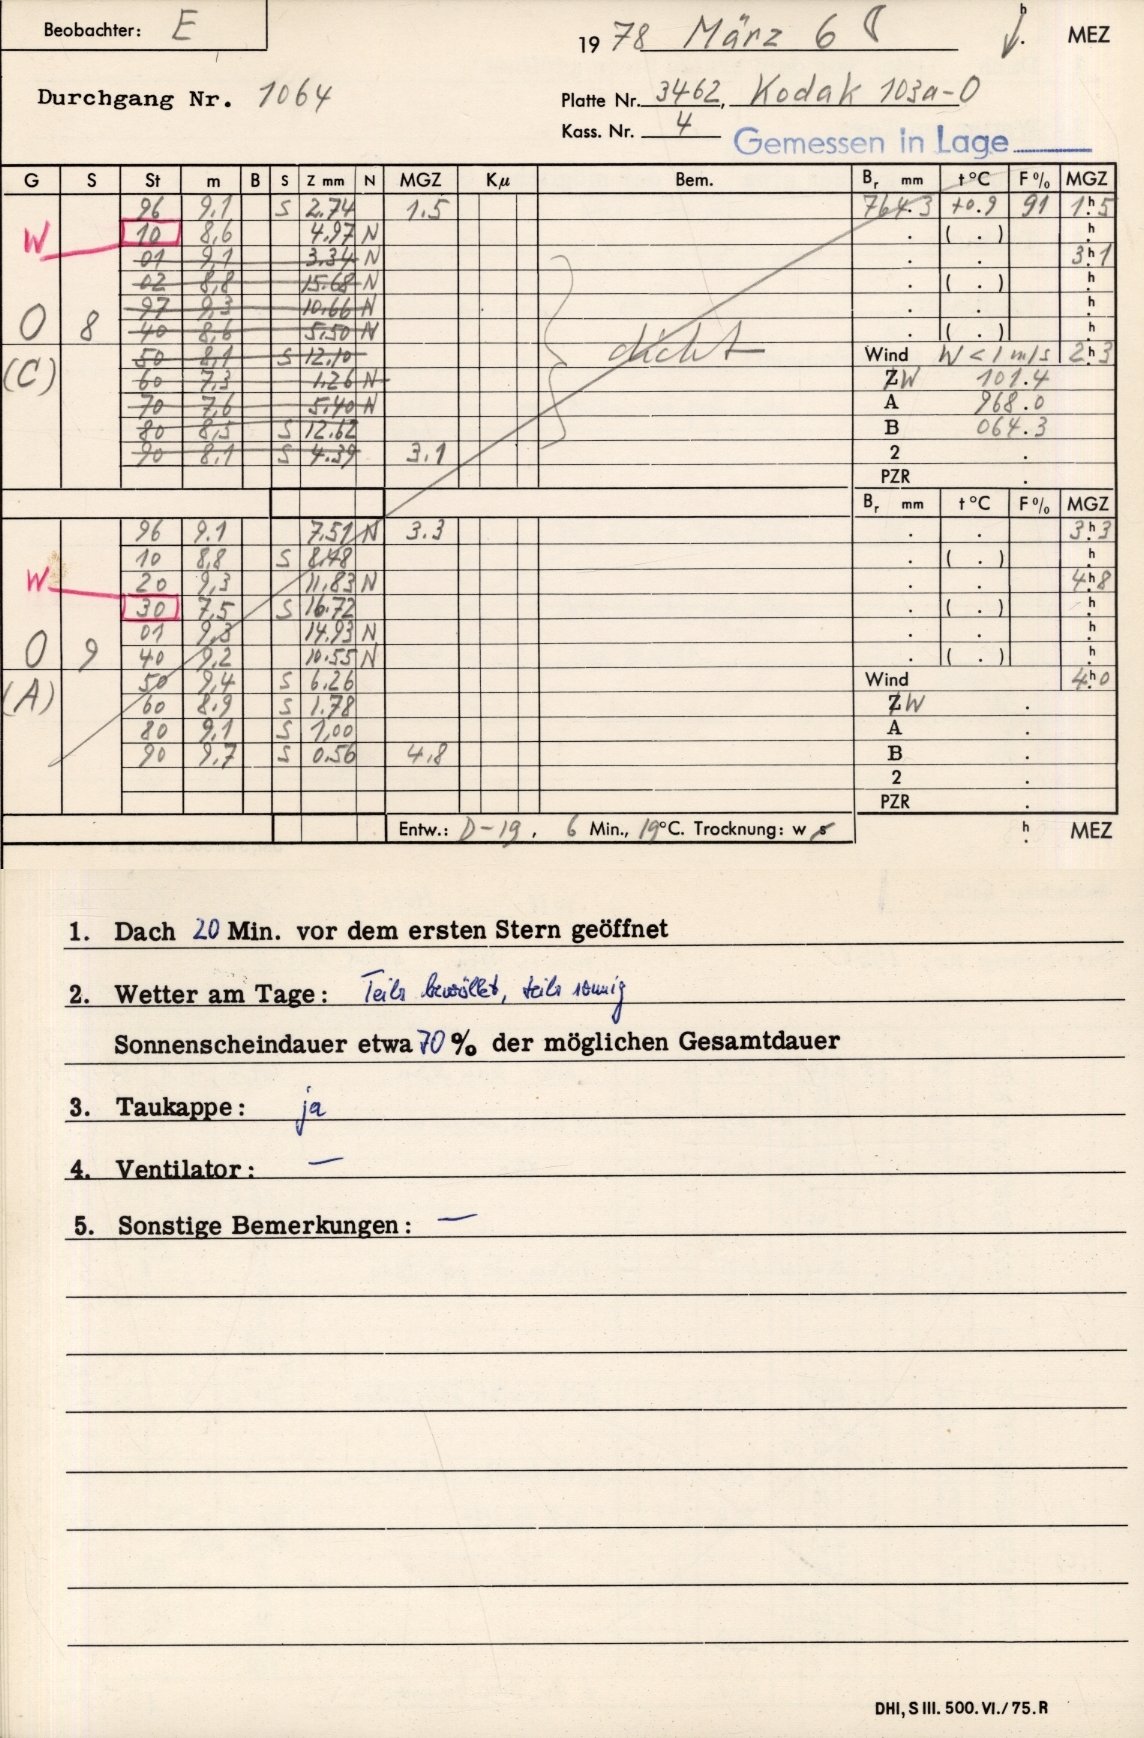 Beobachter: E
1978 März 6 h MEZ
Durchgang Nr. 1064
Platte Nr. 3462, Kodak 103a-O
Kass. Nr. 4
Gemessen in Lage
G S St m B S Z mm N MGZ Kµ Bem. Br mm t °C F % MGZ
96 9,1 S 2.74 1.5 764.3 +0.9 91 1h5
W 10 8,6 4.97 N . ( . ) h
01 9,1 3.34 N . . 3h1
02 8,8 15.68 N . ( . ) h
97 9,3 10.66 N . . h
O 8 40 8,6 5.50 N . ( . ) h
(C) 50 8,1 S 12.10 dicht Wind W < 1 m/s 2h3
60 7,3 1.26 N ZW 101.4
70 7,6 5.40 N A 968.0
80 8,5 S 12.62 B 064.3
90 8,1 S 4.39 3.1 2 .
PZR .
Br mm t °C F % MGZ
96 9.1 7.51 N 3.3 . . 3h3
10 8,8 S 8.48 . ( . ) h
W 20 9,3 11.83 N . . 4h8
30 7,5 S 16.72 . ( . ) h
01 9,3 14.93 N . . h
O 9 40 9,2 10.55 N . ( . ) h
(A) 50 9,4 S 6.26 Wind 4h0
60 8.9 S 1.78 ZW .
80 9,1 S 1,00 A .
90 9,7 S 0.56 4.8 B .
2 .
PZR .
Entw.: D-19, 6 Min., 19°C. Trocknung: w s h MEZ
1. Dach 20 Min. vor dem ersten Stern geöffnet
2. Wetter am Tage: Teils bewölkt, teils sonnig
Sonnenscheindauer etwa 70 % der möglichen Gesamtdauer
3. Taukappe: ja
4. Ventilator: —
5. Sonstige Bemerkungen: —
DHI, S III. 500. VI./75. R